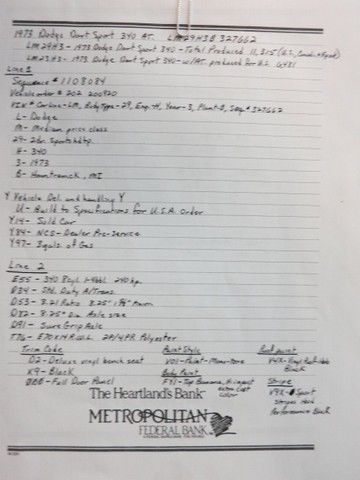 1973 Dodge Dart Sport 340 AT. LM29H3B 327662
LM29H3 - 1973 Dodge Dart Sport 340 - Total Produced 11,315 (U.S., Canada + Export)
LM23H3 - 1973 Dodge Dart Sport 340 - w/AT. produced for U.S.
Line 1
Sequence # 1108084
Vehicle order # 202 200920
VIN # Car Line - LM, Body Type - 29, Eng. - H, Year - 3, Plant - B, Seq # 327662
L - Dodge
M - Medium price class
29 - 2dr. Sports hdtp.
H - 340
3 - 1973
B - Hamtramck, MI
Y Vehicle Del. and handling Y
U - Build to Specifications for U.S.A. order
Y14 - Sold Car
Y84 - NCS - Dealer Pre-Service
Y97 - 3gals. of Gas
Line 2
E55 - 340 8cyl. 1-4bbl. 240hp.
D34 - Std. Duty A/Trans.
D53 - 3.21 Ratio 8.25"
D82 - 8.25" Dia. Axle size
D91 - Sure Grip Axle
E70x14 RWL 2P/4PR Polyester
Trim Code Paint Style Roof paint
D2 - Deluxe vinyl bench seat V01 - Paint - Mono-tone
K9 - Black Body Paint Black
000 - Full Door Panel FY1 - Top Banana, Hi impact Stripe
extra cost color V9X - Sport
Stripes
Performance Black
The Heartland's Bank
METROPOLITAN
FEDERAL BANK